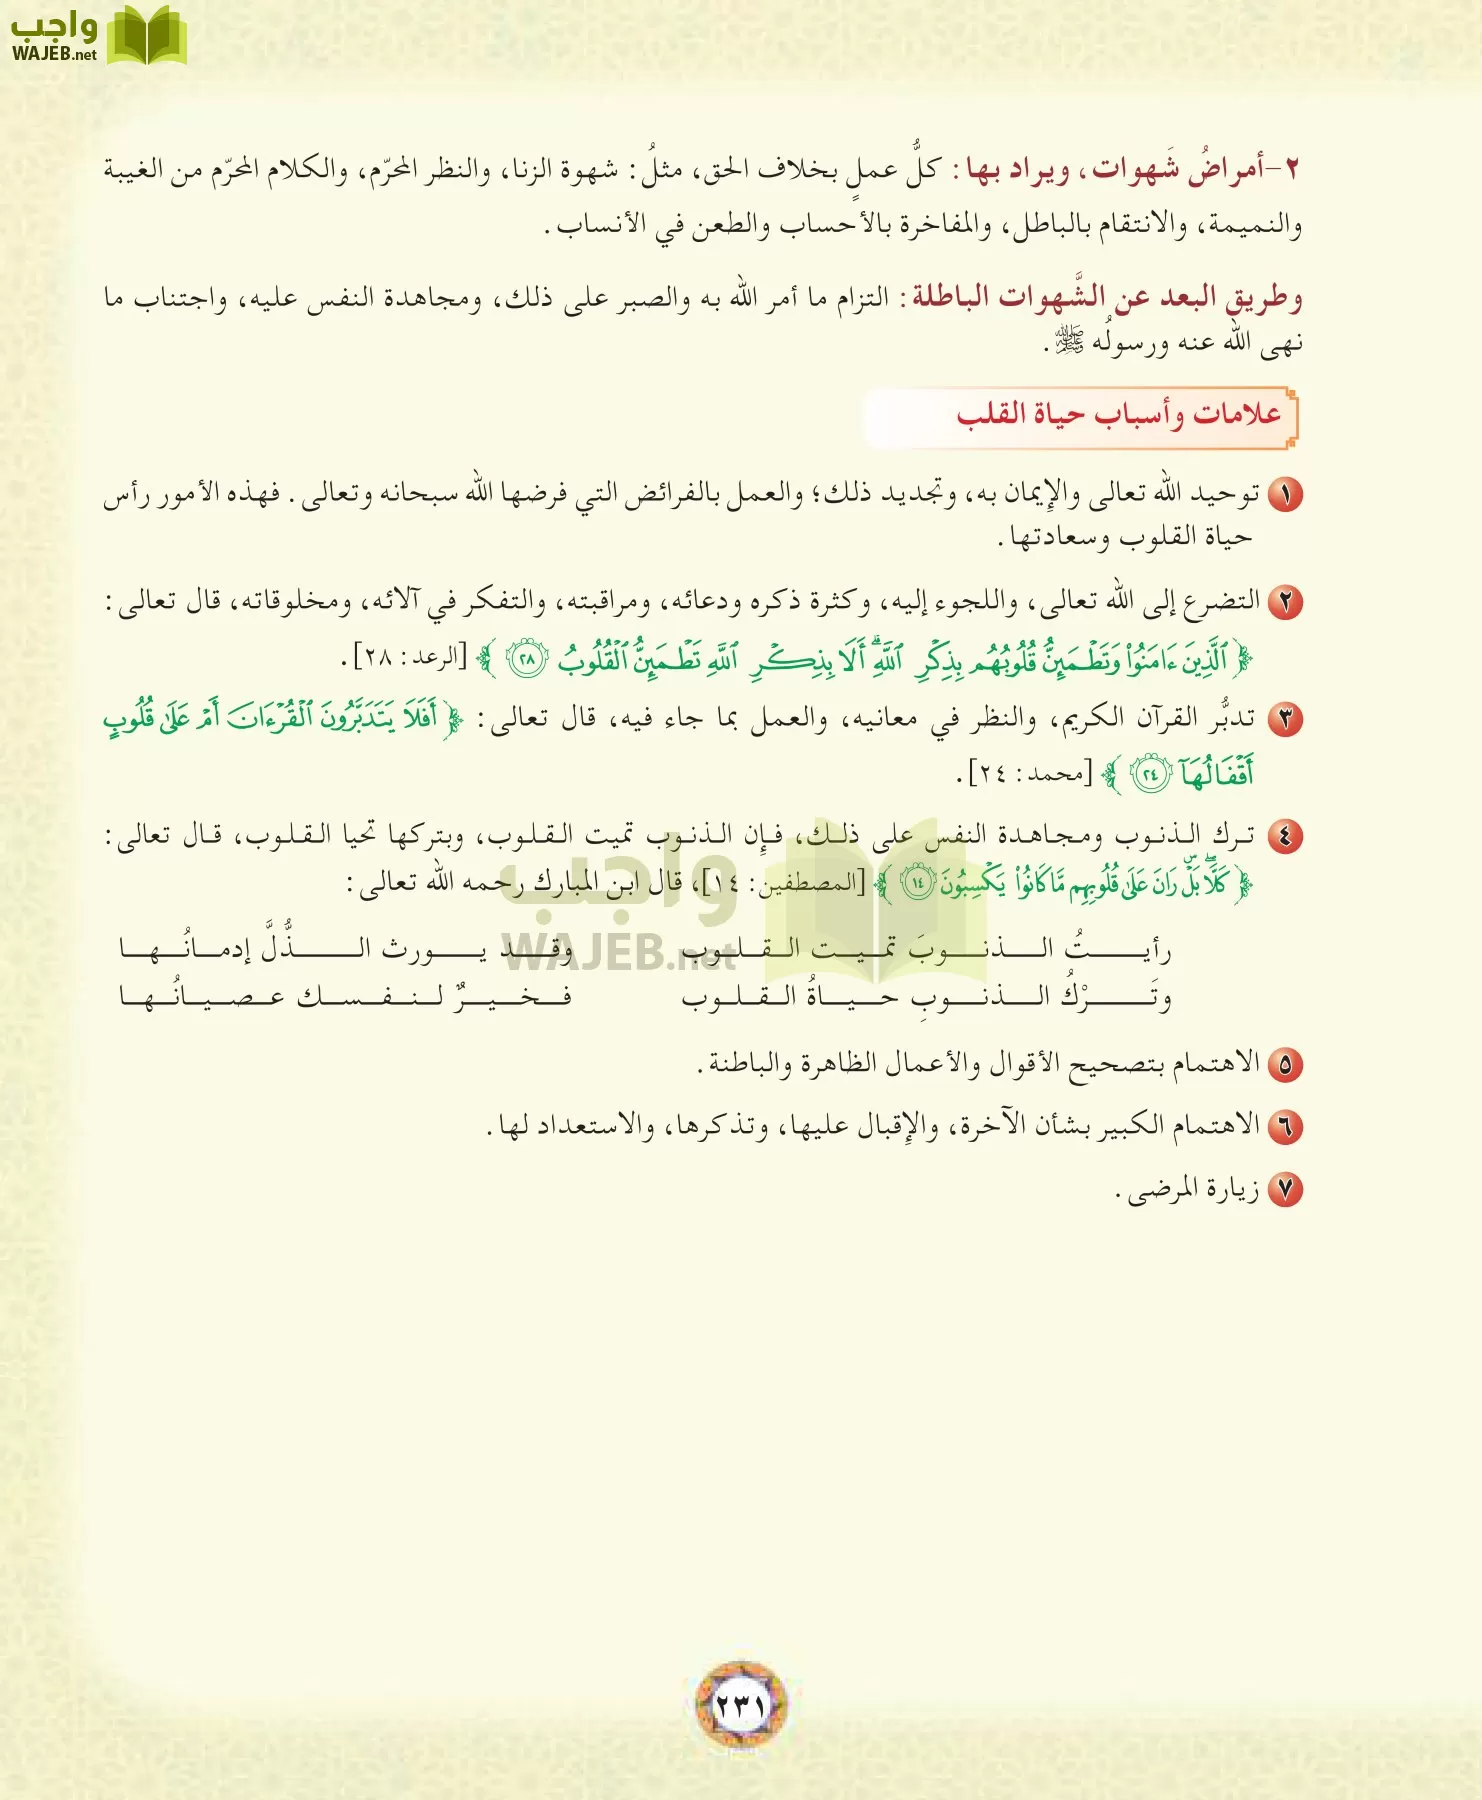 واجب
WAJEB.net
٢-أمراضُ شَهوات، ويراد بها: كلُّ عملٍ بخلاف الحق، مثلُ: شهوة الزنا، والنظر المحرّم، والكلام المحرّم من الغيبة
والنميمة، والانتقام بالباطل، والمفاخرة بالأحساب والطعن في الأنساب.
وطريق البعد عن الشَّهوات الباطلة: التزام ما أمر الله به والصبر على ذلك، ومجاهدة النفس عليه، واجتناب ما
نهى الله عنه ورسولُه ﷺ.
علامات وأسباب حياة القلب
١ توحيد الله تعالى والإيمان به، وتجديد ذلك؛ والعمل بالفرائض التي فرضها الله سبحانه وتعالى. فهذه الأمور رأس
حياة القلوب وسعادتها.
٢ التضرع إلى الله تعالى، واللجوء إليه، وكثرة ذكره ودعائه، ومراقبته، والتفكر في آلائه، ومخلوقاته، قال تعالى:
﴿ ٱلَّذِينَ ءَامَنُوا۟ وَتَطْمَئِنُّ قُلُوبُهُم بِذِكْرِ ٱللَّهِ ۗ أَلَا بِذِكْرِ ٱللَّهِ تَطْمَئِنُّ ٱلْقُلُوبُ ٢٨ ﴾ [الرعد: ٢٨].
٣ تدبُّر القرآن الكريم، والنظر في معانيه، والعمل بما جاء فيه، قال تعالى: ﴿ أَفَلَا يَتَدَبَّرُونَ ٱلْقُرْءَانَ أَمْ عَلَىٰ قُلُوبٍ
أَقْفَالُهَآ ٢٤ ﴾ [محمد: ٢٤].
٤ ترك الذنوب ومجاهدة النفس على ذلك، فإن الذنوب تميت القلوب، وبتركها تحيا القلوب، قال تعالى:
﴿ كَلَّا ۖ بَلْ ۜ رَانَ عَلَىٰ قُلُوبِهِم مَّا كَانُوا۟ يَكْسِبُونَ ١٤ ﴾ [المصطفين: ١٤]، قال ابن المبارك رحمه الله تعالى:
رأيتُ الذنوبَ تميت القلوب وقد يورث الذُّلَّ إدمانُها
وتَرْكُ الذنوبِ حياةُ القلوب فخيرٌ لنفسك عصيانُها
٥ الاهتمام بتصحيح الأقوال والأعمال الظاهرة والباطنة.
٦ الاهتمام الكبير بشأن الآخرة، والإقبال عليها، وتذكرها، والاستعداد لها.
٧ زيارة المرضى.
واجب
WAJEB.net
٢٣١